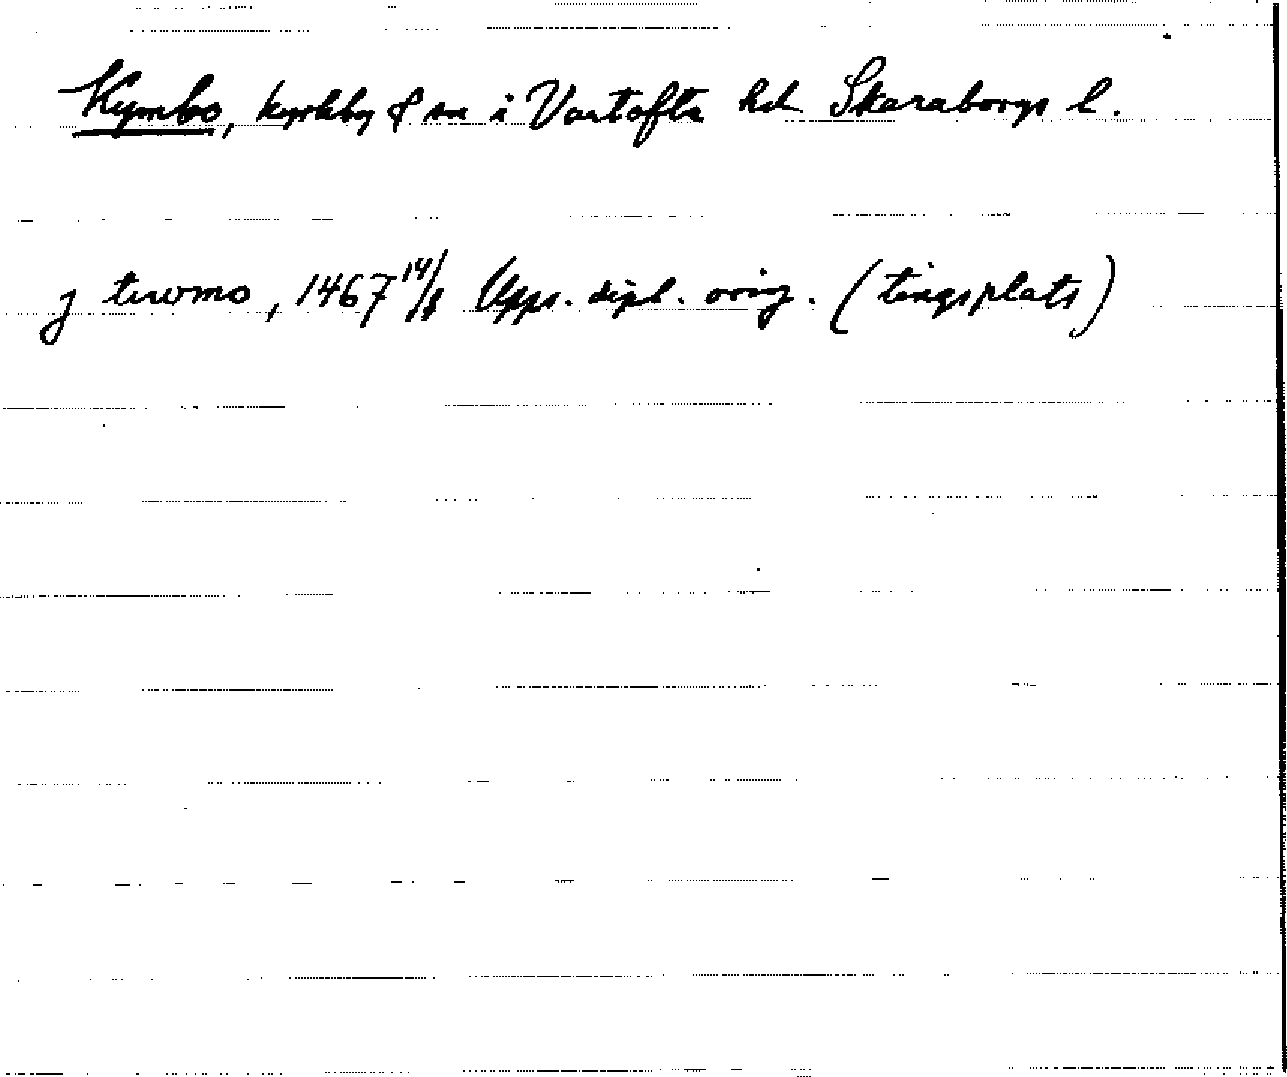 Kymbo, kyrkby & sn i Vartofta hd Skaraborgs l.
j tiwmo, 1467 14/8 Upps. dipl. orig. (tingsplats)